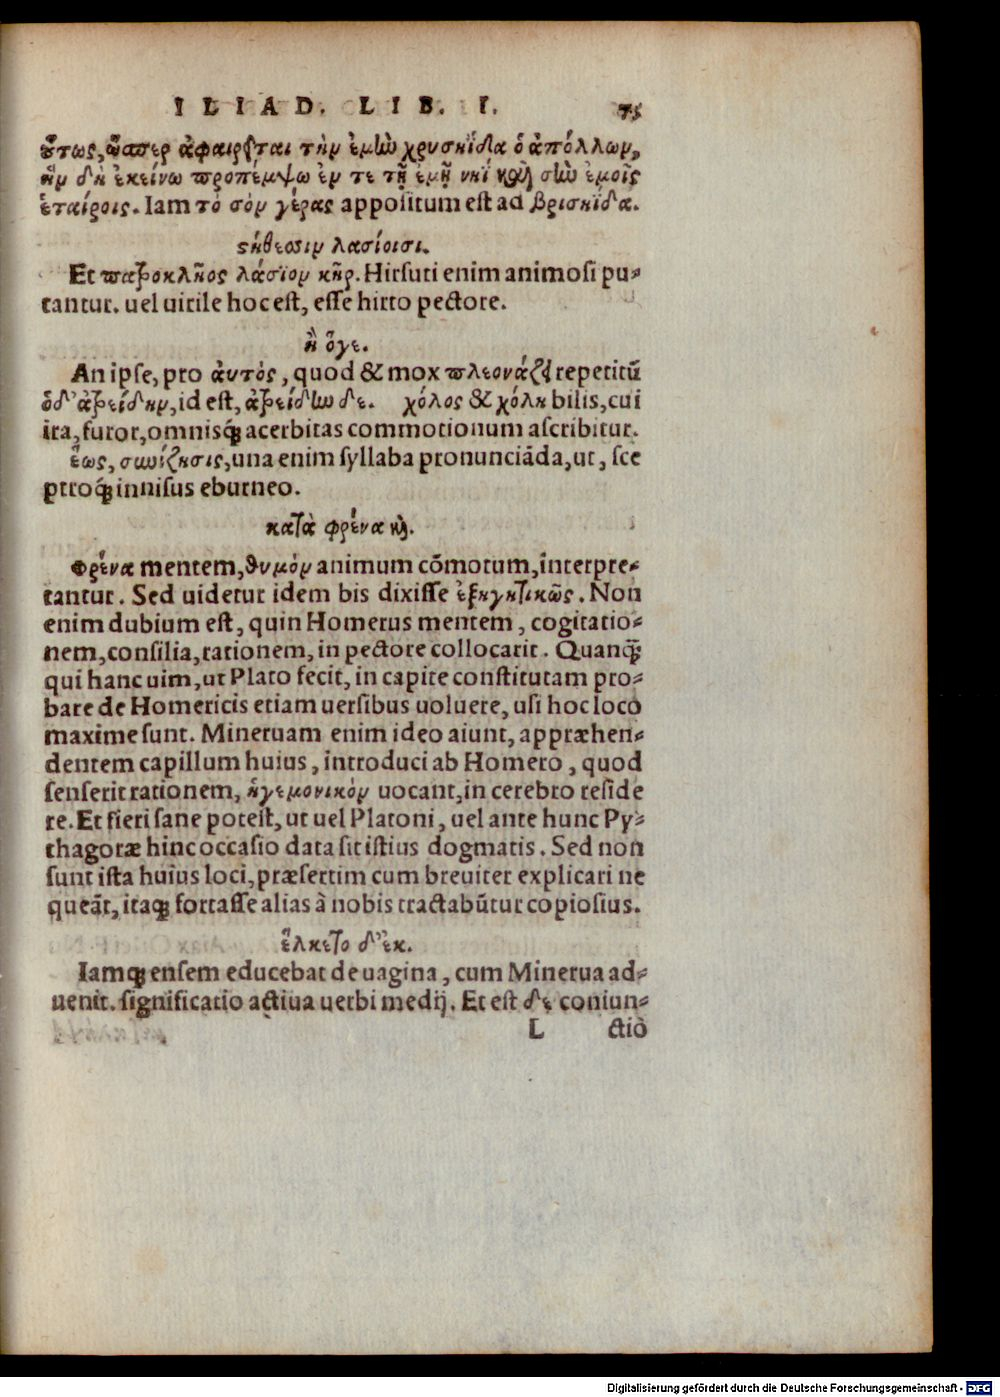 ILIAD. LIB. I. 75
οὕτως, ὥσπερ ἀφαιρεῖται τὴν ἐμὴν χρυσηΐδα ὁ ἀπόλλων,
ἣν δὴ ἐκείνω προπέμψω ἐν τε τῇ ἐμῇ νηῒ καὶ σὺν ἐμοῖς
ἑταίροις. Iam τὸ σὸν γέρας appositum est ad βρισηΐδα.
στήθεσσιν λασίοισι.
Et πατροκλῆος λάσιον κῆρ. Hirsuti enim animosi pu-
tantur. uel uirile hoc est, esse hirto pectore.
ἢ ὅγε.
An ipse, pro ἀυτὸς, quod & mox πλεονάζει repetitũ
ὁδ' ἀτρείδην, id est, ἀτρείδην δε. χόλος & χόλη bilis, cui
ira, furor, omnisq́; acerbitas commotionum ascribitur.
ἕως, συνίζησις, una enim syllaba pronunciãda, ut, sce
ptroq́; innisus eburneo.
κατὰ φρένα καὶ.
Φρένα mentem, θυμὸν animum cõmotum, interpre-
tantur. Sed uidetur idem bis dixisse ἐξηγητικῶς. Non
enim dubium est, quin Homerus mentem, cogitatio-
nem, consilia, rationem, in pectore collocarit. Quanq̃;
qui hanc uim, ut Plato fecit, in capite constitutam pro-
bare de Homericis etiam uersibus uoluere, usi hoc loco
maxime sunt. Mineruam enim ideo aiunt, appræhen-
dentem capillum huius, introduci ab Homero, quod
senserit rationem, ἡγεμονικὸν uocant, in cerebro reside
re. Et fieri sane potest, ut uel Platoni, uel ante hunc Py-
thagoræ hinc occasio data sit istius dogmatis. Sed non
sunt ista huius loci, præsertim cum breuiter explicari ne
queãt, itaq; fortasse alias à nobis tractabũtur copiosius.
ἕλκετο δ' ἐκ.
Iamq; ensem educebat de uagina, cum Minerua ad-
uenit. significatio actiua uerbi medij. Et est δε coniun-
L ctio
Digitalisierung gefördert durch die Deutsche Forschungsgemeinschaft - DFG